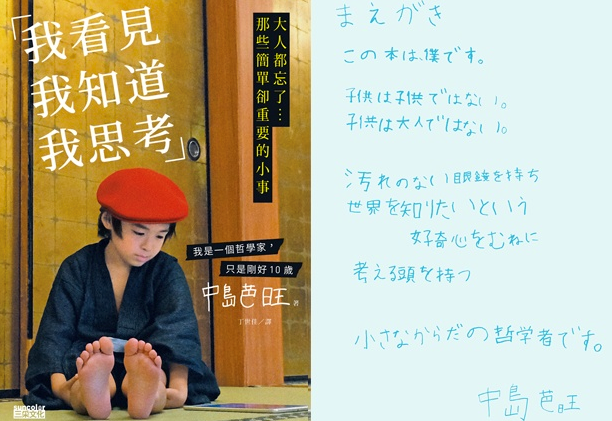 「我看見
我知道
我思考」
大人都忘了…
那些簡單卻重要的小事
我是一個哲學家，
只是剛好10歲
中島芭旺 著
丁世佳／譯
suncolor
三采文化
まえがき
この本は、僕です。
子供は子供ではない。
子供は大人ではない。
汚れのない眼鏡を持ち
世界を知りたいという
好奇心をむねに
考える頭を持つ
小さなからだの哲学者です。
中島芭旺